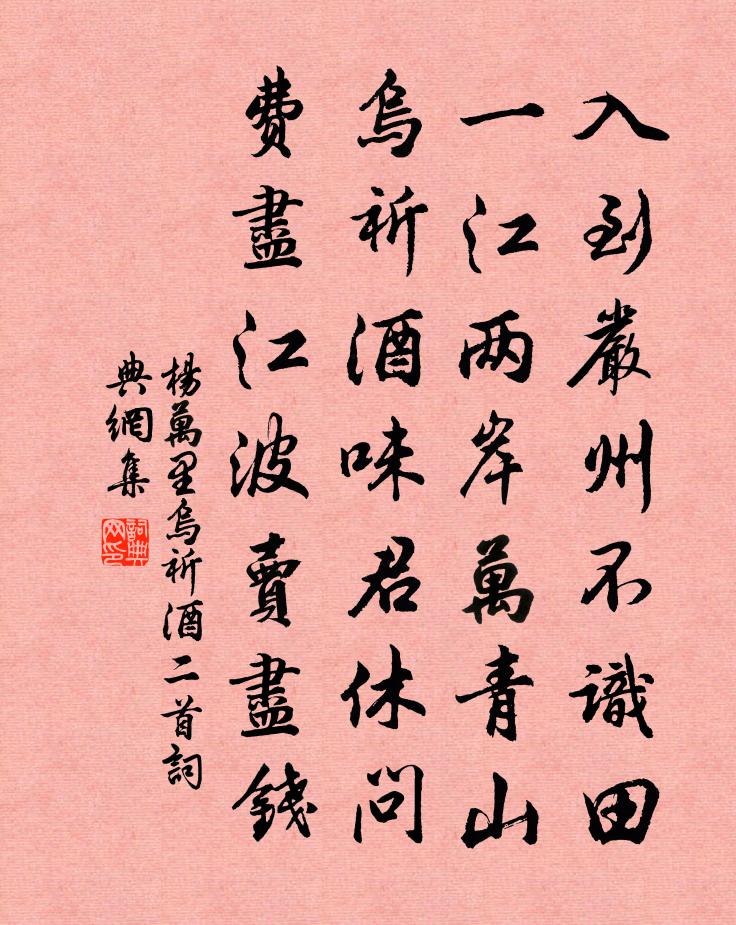 入到嚴州不識田
一江兩岸萬青山
烏祈酒味君休問
費盡江波賣盡錢
楊萬里烏祈酒二首詞
典網集
詞典
网印